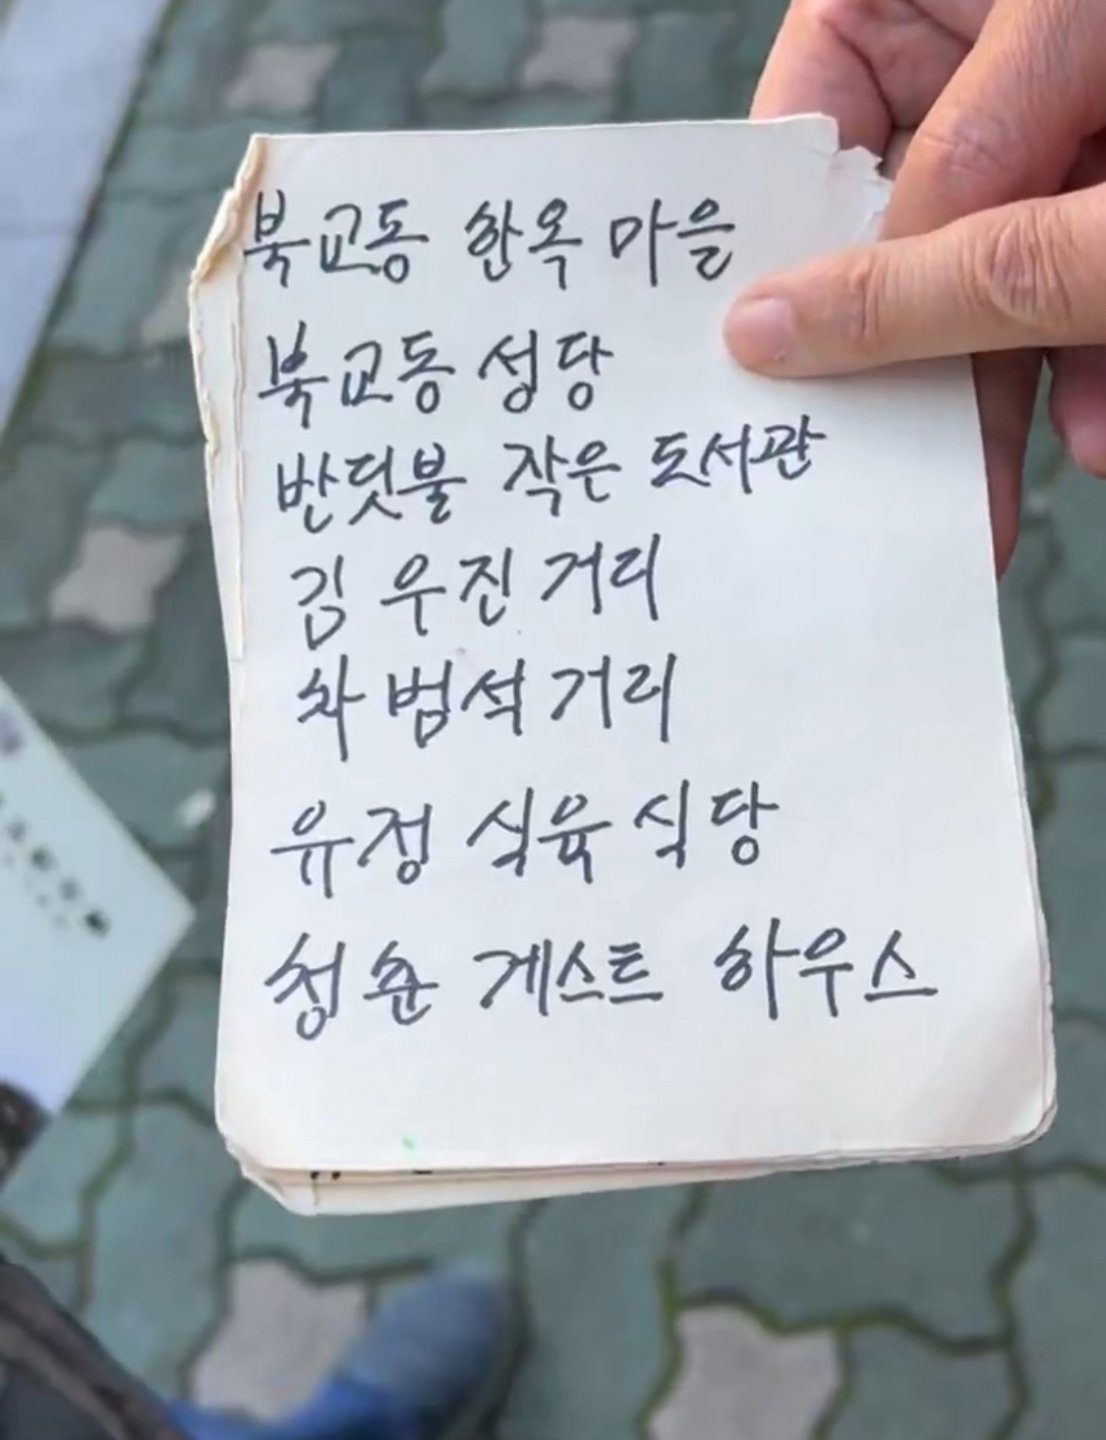 북교동 한옥 마을
북교동 성당
반딧불 작은 도서관
김우진 거리
차범석 거리
유정 식육식당
청춘 게스트 하우스